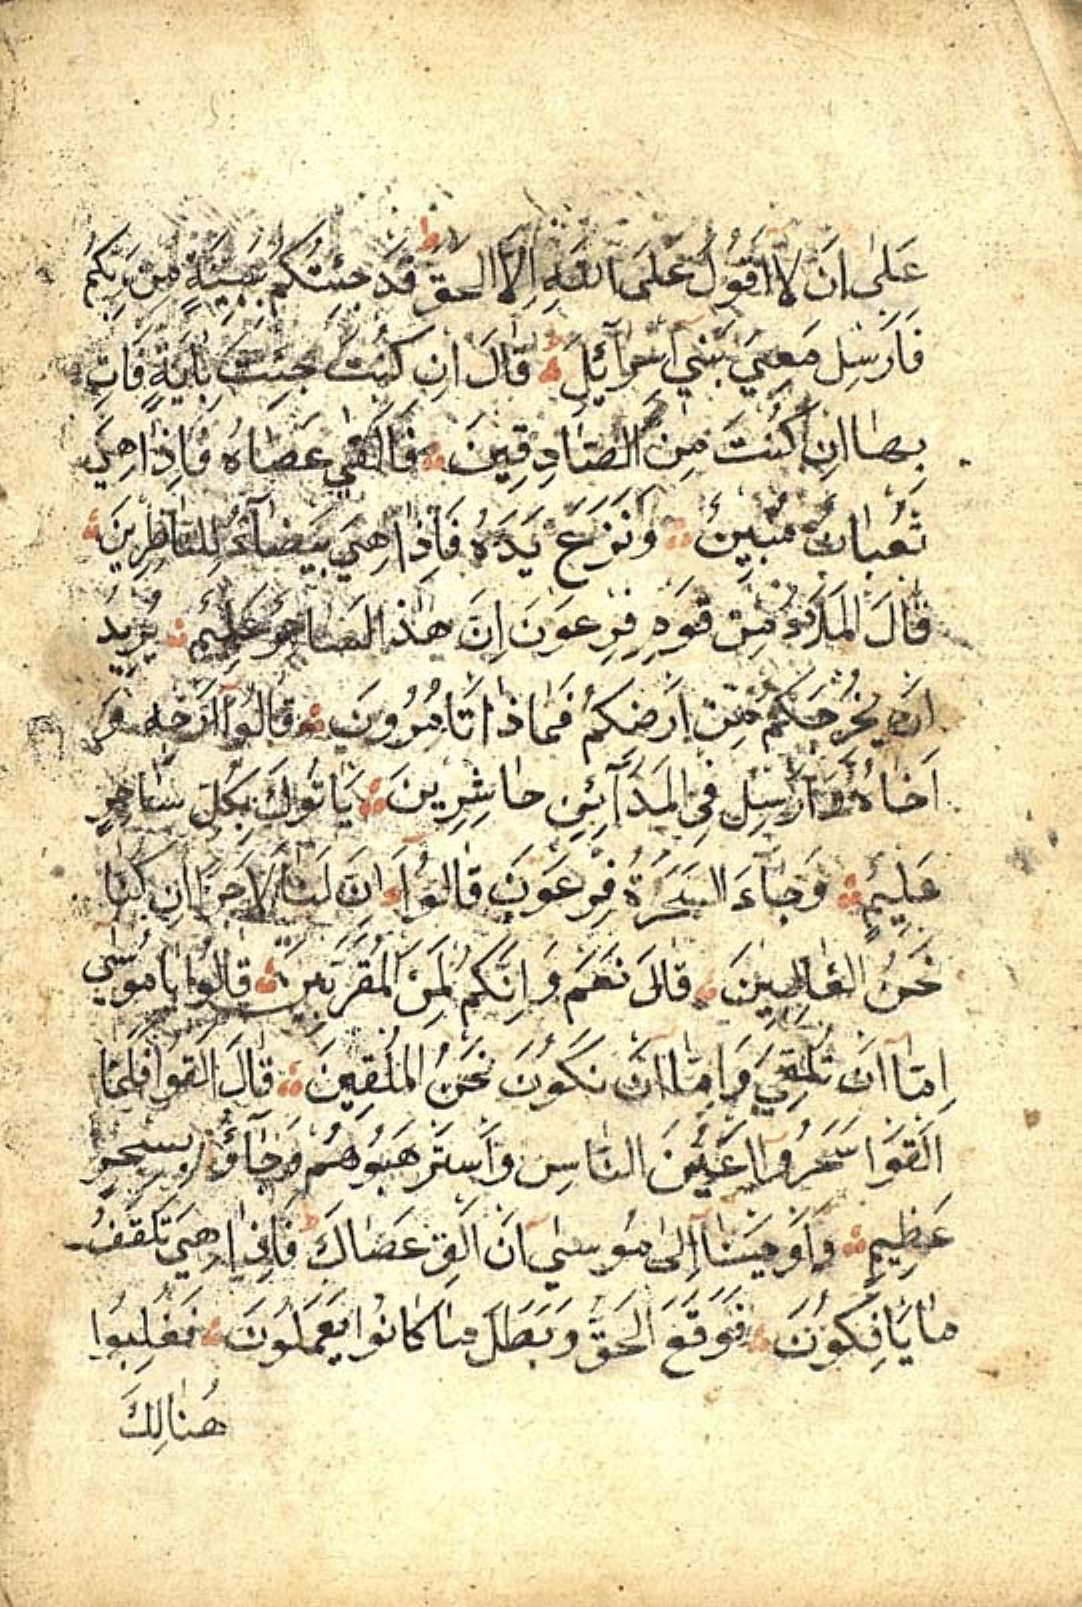 عَلٰى اَنْ لَا اَقُولَ عَلَى اللّٰهِ اِلَّا الْحَقَّ ط قَدْ جِئْتُكُمْ بِبَيِّنَةٍ مِنْ رَبِّكُمْ
فَاَرْسِلْ مَعِيَ بَنِي اِسْرَآئِلَ قَالَ اِنْ كُنْتَ جِئْتَ بِاٰيَةٍ فَاْتِ
بِهَا اِنْ كُنْتَ مِنَ الصَّادِقِينَ فَاَلْقٰى عَصَاهُ فَاِذَا هِيَ
ثُعْبَانٌ مُبِينٌ وَنَزَعَ يَدَهُ فَاِذَا هِيَ بَيْضَآءُ لِلنَّاظِرِينَ
قَالَ الْمَلَاُ مِنْ قَوْمِ فِرْعَوْنَ اِنَّ هٰذَا لَسَاحِرٌ عَلِيمٌ يُرِيدُ
اَنْ يُخْرِجَكُمْ مِنْ اَرْضِكُمْ فَمَاذَا تَاْمُرُونَ قَالُوا اَرْجِهْ وَ
اَخَاهُ وَاَرْسِلْ فِي الْمَدَآئِنِ حَاشِرِينَ يَاْتُوكَ بِكُلِّ سَاحِرٍ
عَلِيمٍ وَجَآءَ السَّحَرَةُ فِرْعَوْنَ قَالُوا اِنَّ لَنَا لَاَجْرًا اِنْ كُنَّا
نَحْنُ الْغَالِبِينَ قَالَ نَعَمْ وَاِنَّكُمْ لَمِنَ الْمُقَرَّبِينَ قَالُوا يَا مُوسٰى
اِمَّآ اَنْ تُلْقِيَ وَاِمَّآ اَنْ نَكُونَ نَحْنُ الْمُلْقِينَ قَالَ اَلْقُوا فَلَمَّا
اَلْقَوْا سَحَرُوا اَعْيُنَ النَّاسِ وَاسْتَرْهَبُوهُمْ وَجَآؤُ بِسِحْرٍ
عَظِيمٍ وَاَوْحَيْنَا اِلٰى مُوسٰى اَنْ اَلْقِ عَصَاكَ ط فَاِذَا هِيَ تَلْقَفُ
مَا يَاْفِكُونَ فَوَقَعَ الْحَقُّ وَبَطَلَ مَا كَانُوا يَعْمَلُونَ فَغُلِبُوا
هُنَالِكَ